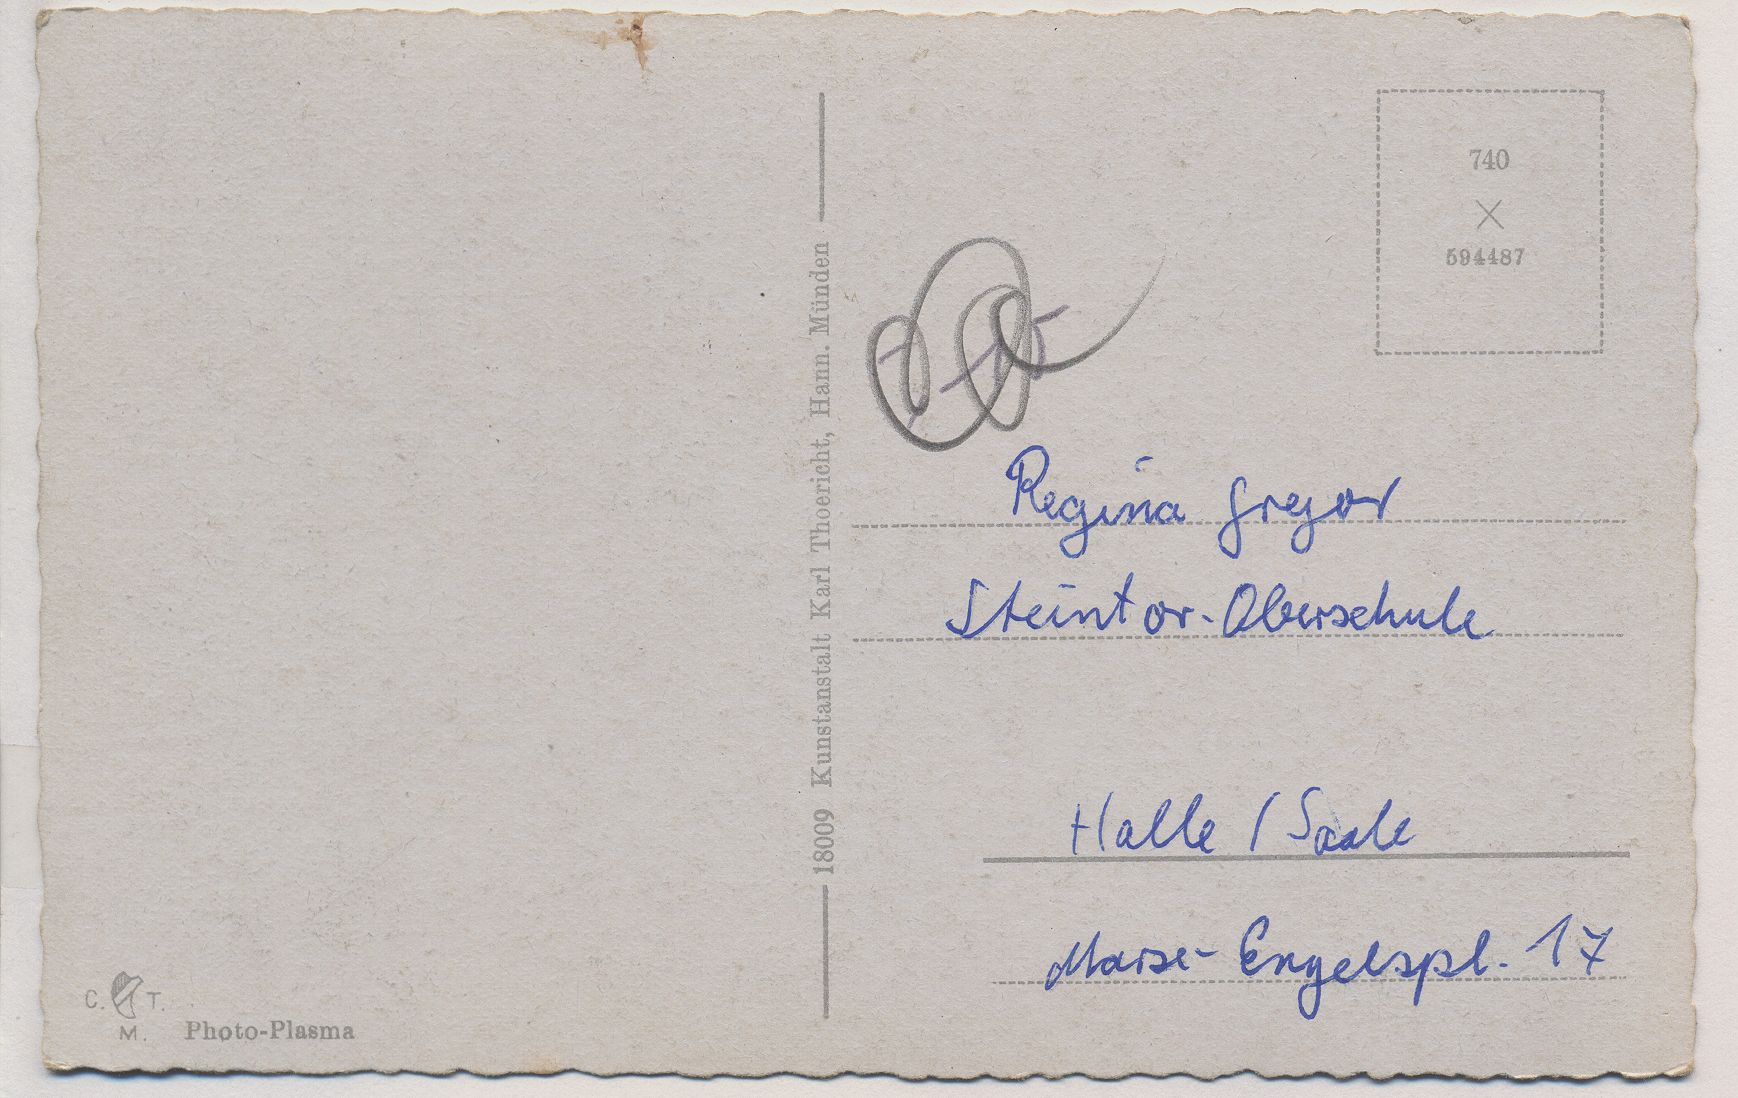 740
X
594487
Regina Gregor
Steintor-Oberschule
Halle / Saale
Marx-Engelspl. 17
18009 Kunstanstalt Karl Thoericht, Hann. Münden
C. T.
M. Photo-Plasma